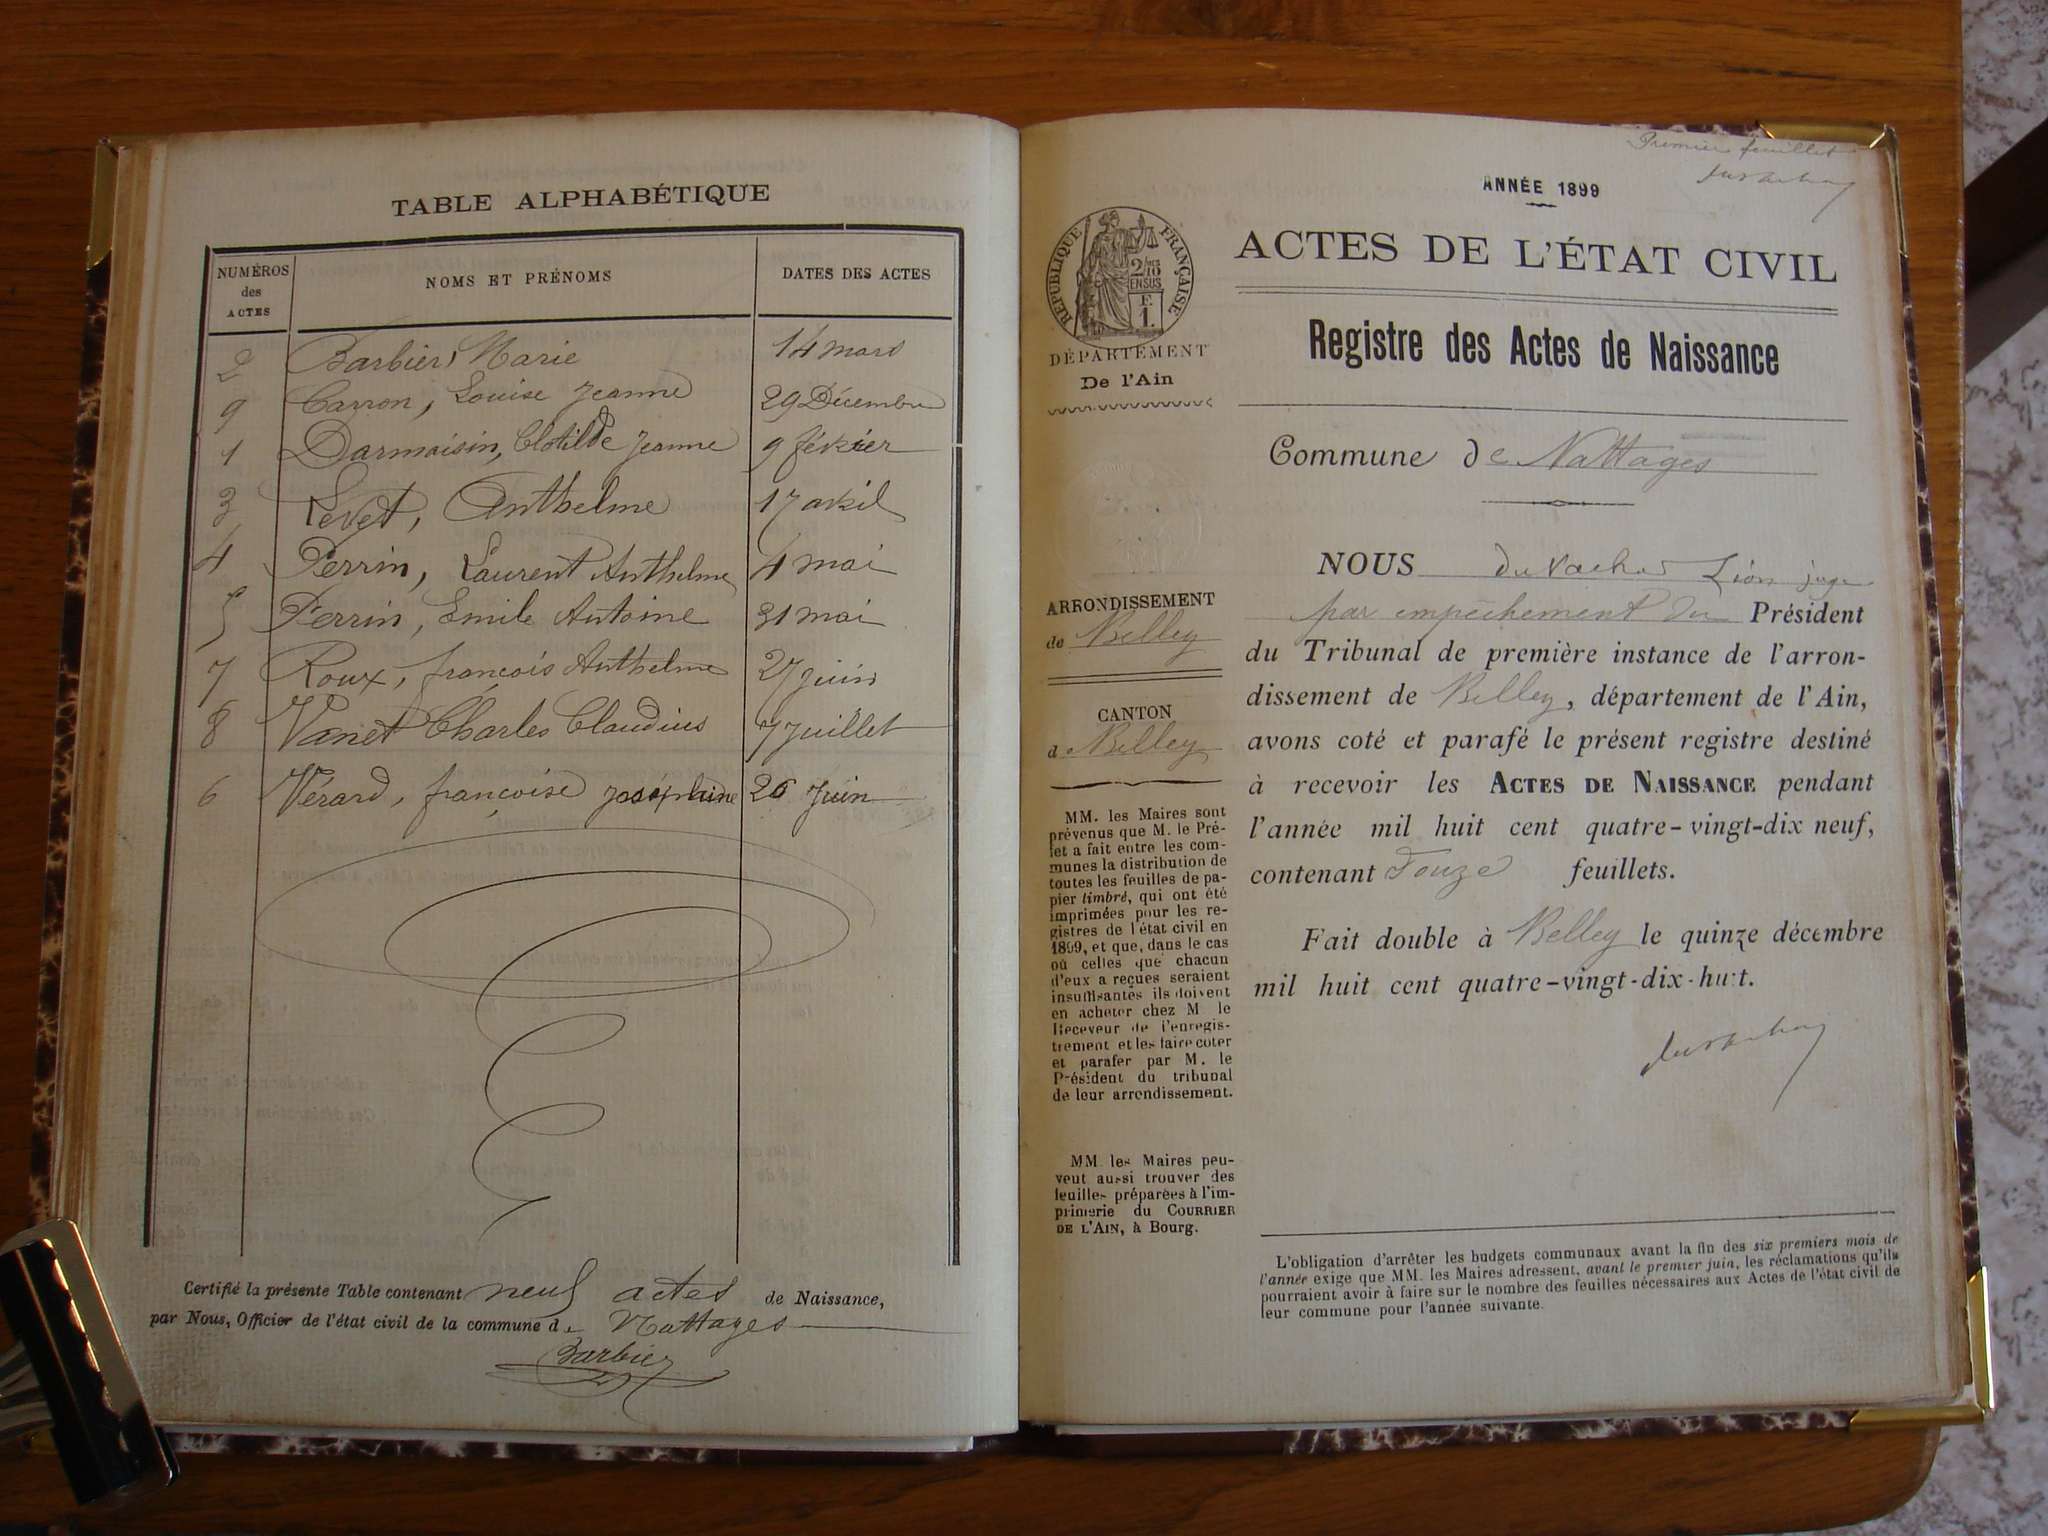 TABLE ALPHABÉTIQUE
NUMÉROS des ACTES
NOMS ET PRÉNOMS
DATES DES ACTES
2 Barbier, Marie 14 mars
9 Carron, Louise Jeanne 29 Décembre
1 Darmaisin, Clotilde Jeanne 9 février
3 Levet, Anthelme 17 avril
4 Perrin, Laurent Anthelme 4 mai
5 Perrin, Emile Antoine 31 mai
7 Roux, françois Anthelme 27 juin
8 Vanet Charles Claudius 7 Juillet
6 Vérard, françoise joséphine 26 Juin
Certifié la présente Table contenant neuf actes de Naissance,
par Nous, Officier de l'état civil de la commune de Nattages
Barbier
Premier feuillet
ANNÉE 1899
RÉPUBLIQUE FRANÇAISE
2/10 EN SUS
F. 1.
DÉPARTEMENT
De l'Ain
ARRONDISSEMENT
de Belley
CANTON
d Belley
MM. les Maires sont
prévenus que M. le Pré-
fet a fait entre les com-
munes la distribution de
toutes les feuilles de pa-
pier timbré, qui ont été
imprimées pour les re-
gistres de l'état civil en
1899, et que, dans le cas
où celles que chacun
d'eux a reçues seraient
insuffisantes ils doivent
en acheter chez M. le
Receveur de l'enregis-
trement et les faire coter
et parafer par M. le
Président du tribunal
de leur arrondissement.
MM. les Maires peu-
vent aussi trouver des
feuilles préparées à l'im-
primerie du COURRIER
DE L'AIN, à Bourg.
ACTES DE L'ÉTAT CIVIL
Registre des Actes de Naissance
Commune de Nattages
NOUS juge
par empêchement du Président
du Tribunal de première instance de l'arron-
dissement de Belley, département de l'Ain,
avons coté et parafé le présent registre destiné
à recevoir les ACTES DE NAISSANCE pendant
l'année mil huit cent quatre-vingt-dix neuf,
contenant Douze feuillets.
Fait double à Belley le quinze décembre
mil huit cent quatre-vingt-dix-huit.
L'obligation d'arrêter les budgets communaux avant la fin des six premiers mois de
l'année exige que MM. les Maires adressent, avant le premier juin, les réclamations qu'ils
pourraient avoir à faire sur le nombre des feuilles nécessaires aux Actes de l'état civil de
leur commune pour l'année suivante.